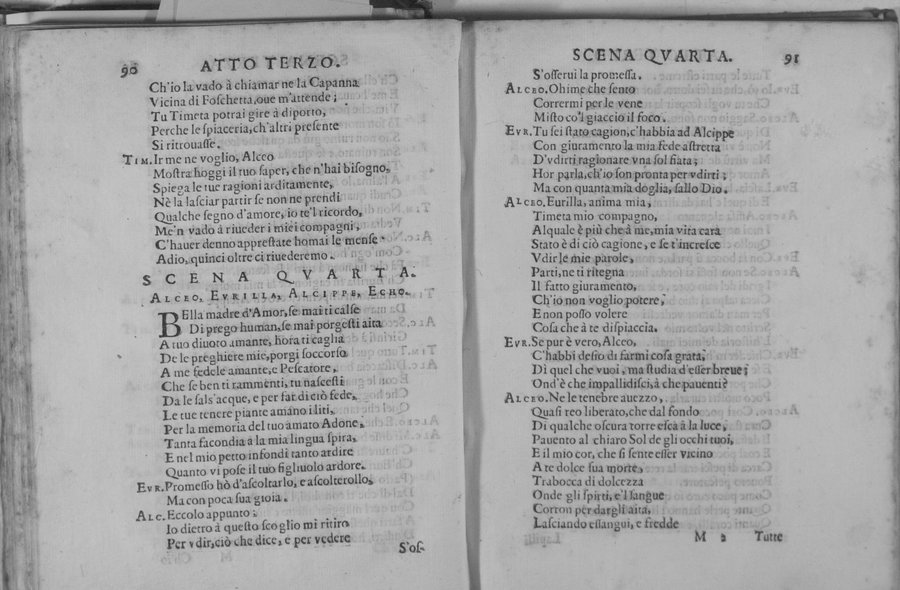 90 ATTO TERZO.
Ch'io la vado à chiamar ne la Capanna
Vicina di Foschetta, oue m'attende;
Tu Timeta potrai gire à diporto,
Perche le spiaceria, ch'altri presente
Si ritrouasse.
TIM. Ir me ne voglio, Alceo
Mostra hoggi il tuo saper, che n'hai bisogno,
Spiega le tue ragioni arditamente,
Nè la lasciar partir se non ne prendi
Qualche segno d'amore, io te'l ricordo,
Me'n vado à riueder i miei compagni,
C'hauer denno apprestate homai le mense
Adio, quinci oltre ci riuederemo.
SCENA QVARTA.
ALCEO, EVRILLA, ALCIPPE, ECHO.
BElla madre d'Amor, se mai ti calse
Di prego human, se mai porgesti aita
A tuo diuoto amante, hora ti caglia
De le preghiere mie, porgi soccorso
A me fedele amante, e Pescatore,
Che se ben ti rammenti, tu nascesti
Da le sals'acque, e per far di ciò fede,
Le tue tenere piante amano i liti,
Per la memoria del tuo amato Adone,
Tanta facondia à la mia lingua spira,
E nel mio petto infondi tanto ardire
Quanto vi pose il tuo figliuolo ardore.
EVR. Promesso hò d'ascoltarlo, e ascolterollo,
Ma con poca sua gioia.
ALC. Eccolo appunto;
Io dietro à questo scoglio mi ritiro
Per vdir, ciò che dice, e per vedere
S'os-
SCENA QVARTA. 91
S'osserui la promessa.
ALCEO. Ohime che sento
Corrermi per le vene
Misto co'l giaccio il foco.
EVR. Tu sei stato cagion, c'habbia ad Alcippe
Con giuramento la mia fede astretta
D'vdirti ragionare vna sol fiata;
Hor parla, ch'io son pronta per vdirti;
Ma con quanta mia doglia, sallo Dio.
ALCEO. Eurilla, anima mia,
Timeta mio compagno,
Al quale è più che à me, mia vita cara
Stato è di ciò cagione, e se t'incresce
Vdir le mie parole,
Parti, ne ti ritegna
Il fatto giuramento,
Ch'io non voglio potere,
E non posso volere
Cosa che à te dispiaccia.
EVR. Se pur è vero, Alceo,
C'habbi desio di farmi cosa grata,
Di quel che vuoi, ma studia d'esser breue;
Ond'è che impallidisci, à che pauenti?
ALCEO. Ne le tenebre auezzo,
Quasi reo liberato, che dal fondo
Di qualche oscura torre esca à la luce,
Pauento al chiaro Sol de gli occhi tuoi,
E il mio cor, che si sente esser vicino
A te dolce sua morte,
Trabocca di dolcezza
Onde gli spirti, e'l sangue
Corron per dargli aita,
Lasciando essangui, e fredde
M 2 Tutte